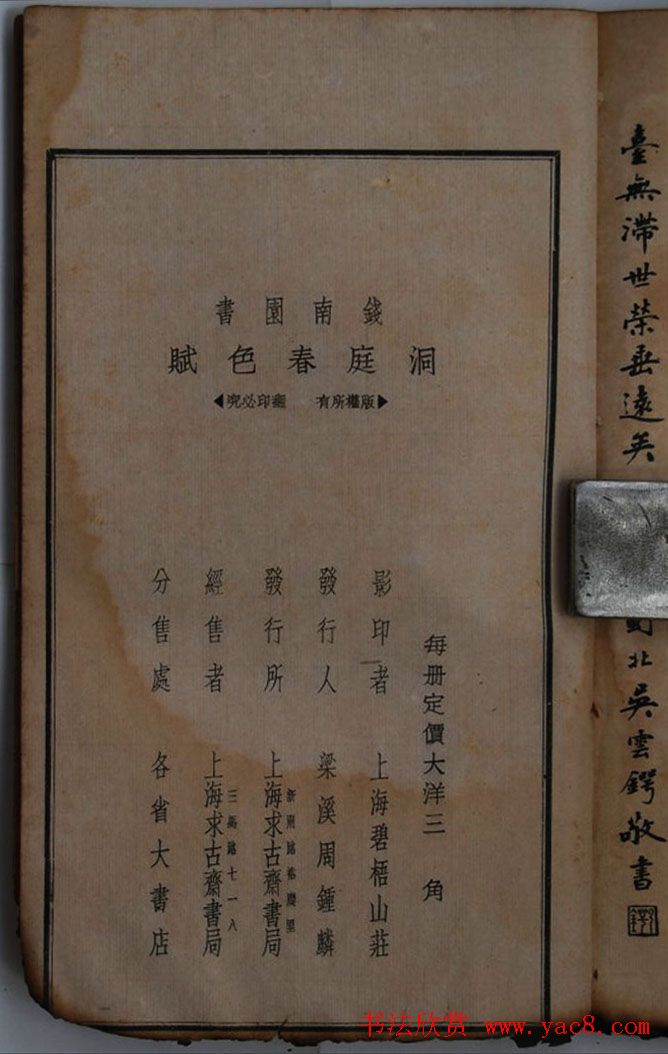 臺無滯世榮垂遠矣
北吳雲鍔敬書
錢南園書
洞庭春色賦
版權所有 翻印必究
每册定價大洋三角
影印者 上海碧梧山莊
發行人 梁溪周鍾麟
發行所 新閘路裕慶里 上海求古齋書局
經售者 三馬路七一八 上海求古齋書局
分售處 各省大書店
书法欣赏 www.yac8.com